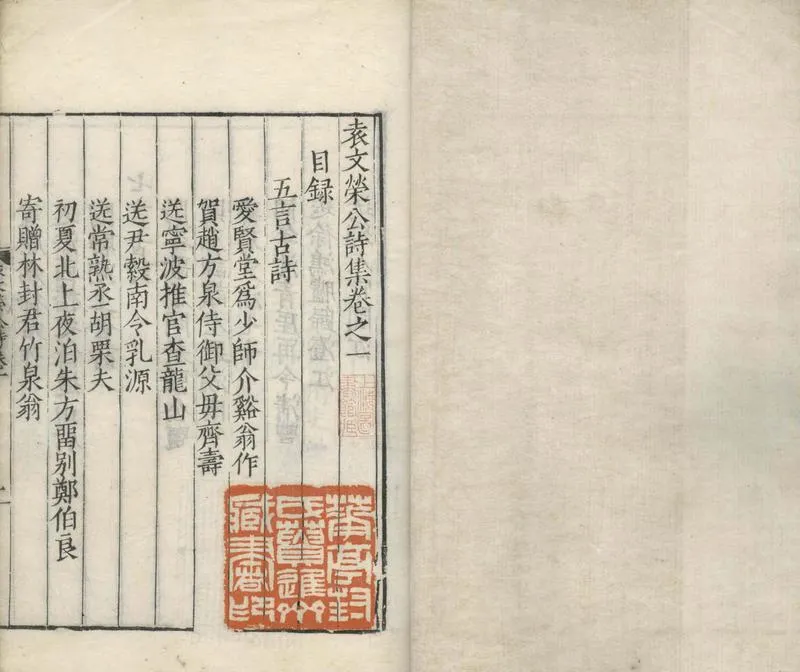 袁文榮公詩集卷之一
目錄
五言古詩
愛賢堂爲少師介谿翁作
賀趙方泉侍御父毋齊壽
送寧波推官查龍山
送尹縠南令乳源
送常熟丞胡栗夫
初夏北上夜泊朱方畱别鄭伯良
寄贈林封君竹泉翁
華亭封
氏簣進
藏書印